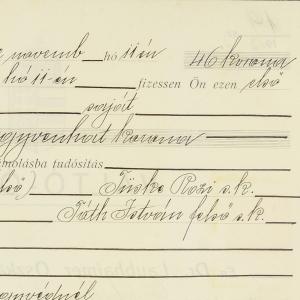 novemb hó 11én 46 korona
hó 11-én fizessen Ön ezen első
saját
negyvenhat korona
számolásba tudósítás
első) Tüske Rozi s.k.
Tóth István felső s.k.
ügyvédnél